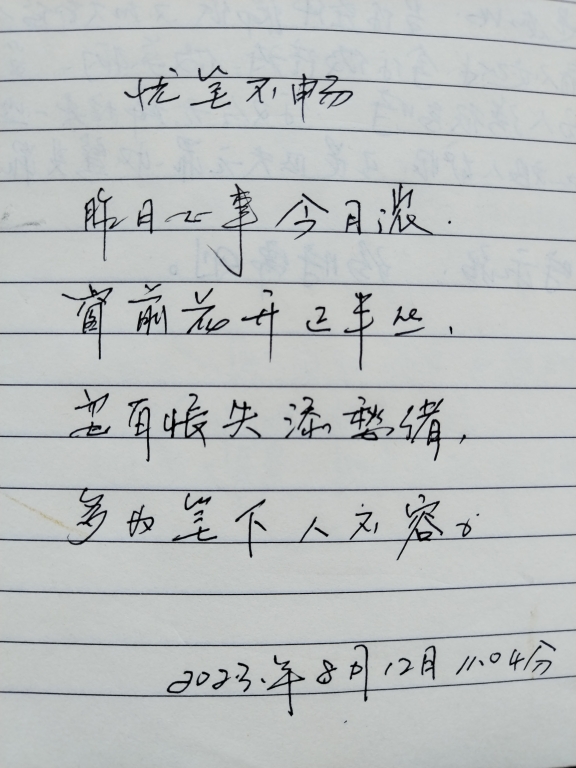 忧笔不畅
昨日心事今日浓.
窗前花开已半丝,
岂有怅失添愁绪,
多为笔下人不容。
2023.年8月12日11.04分